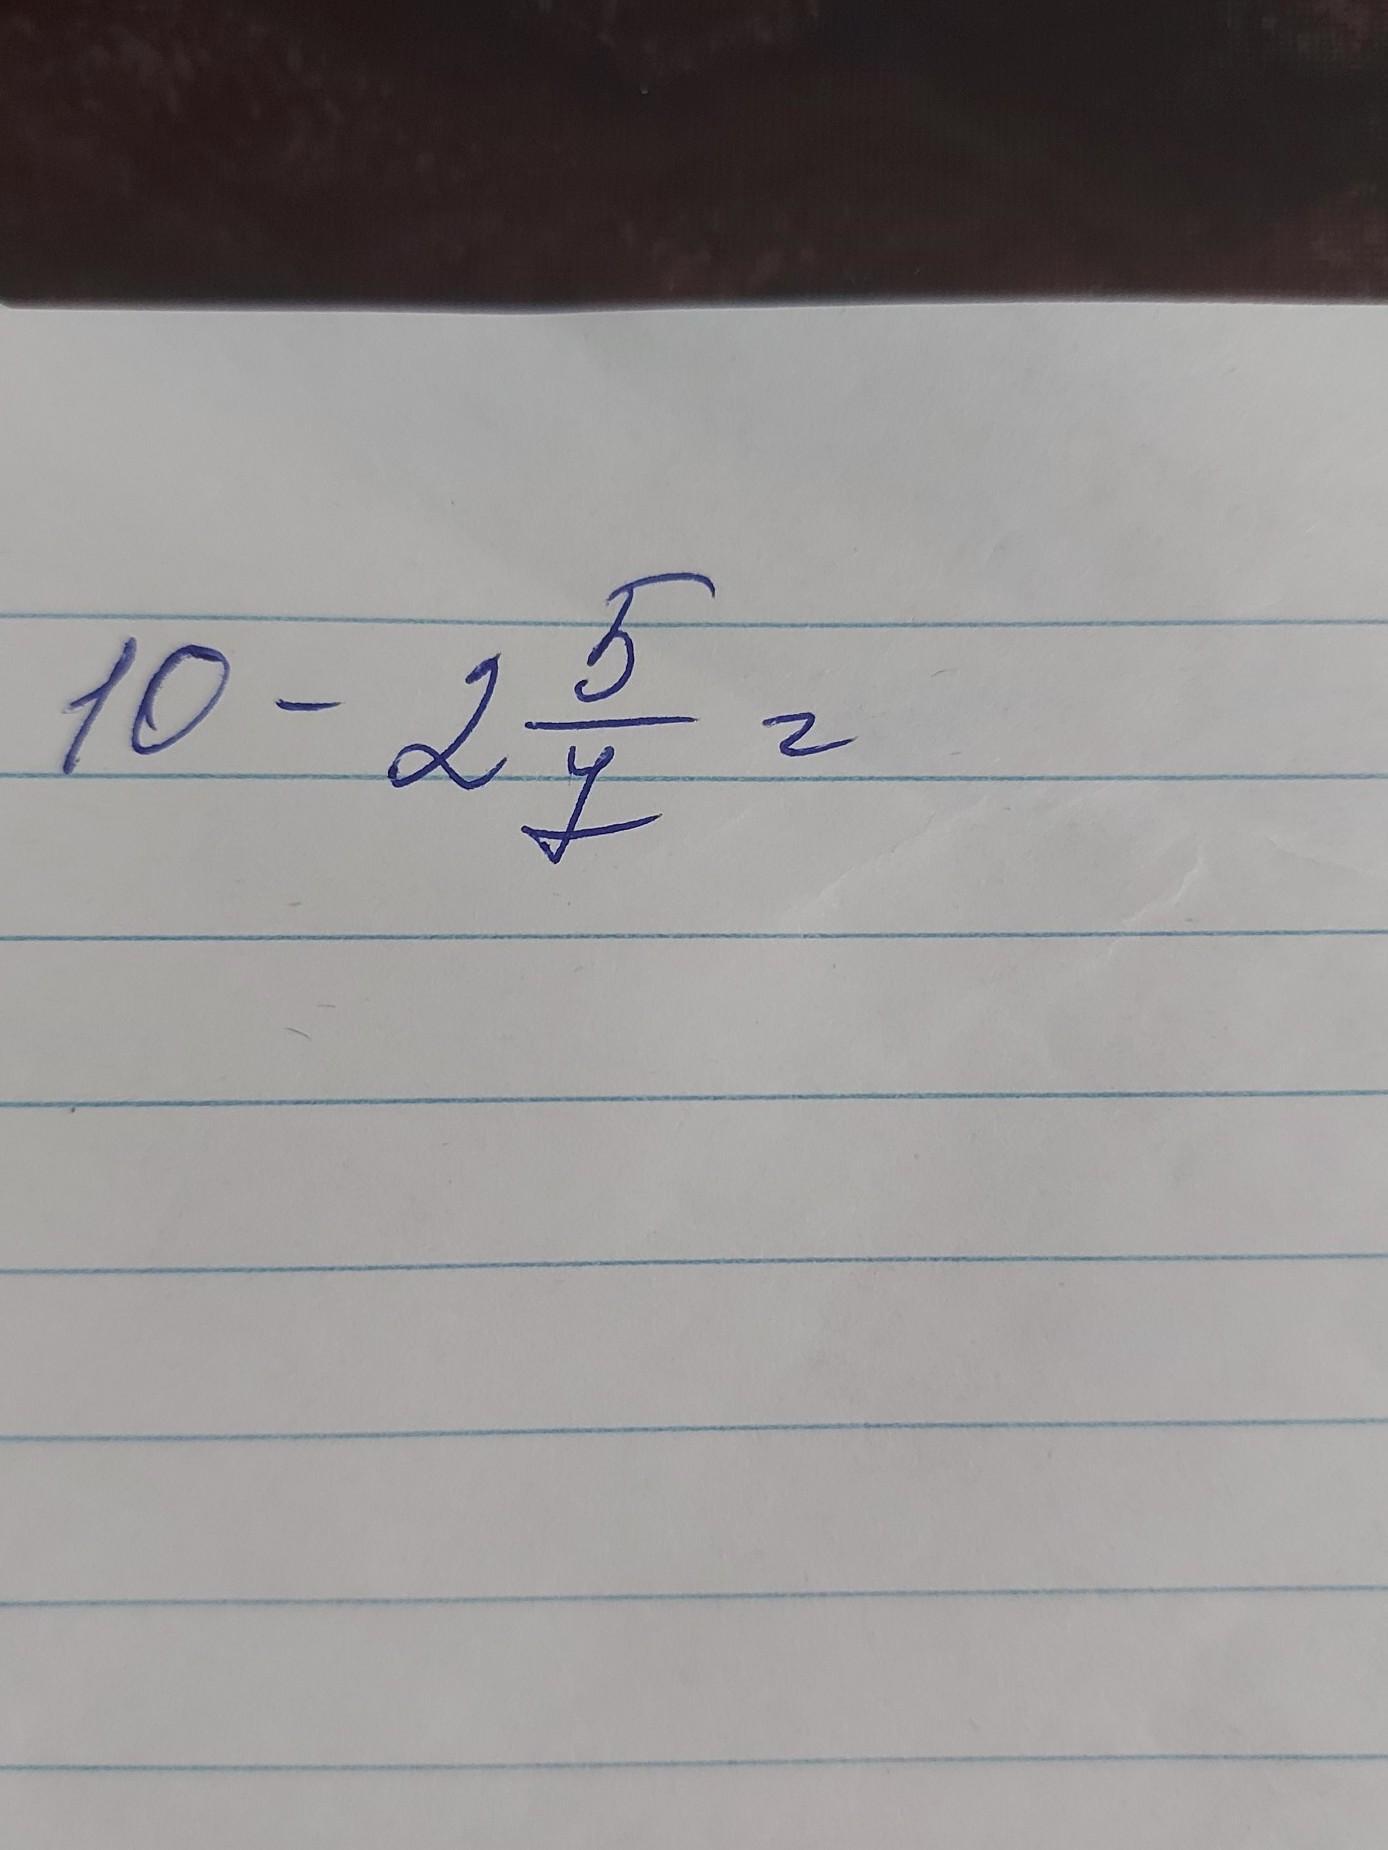 10 - 2 5/7 =